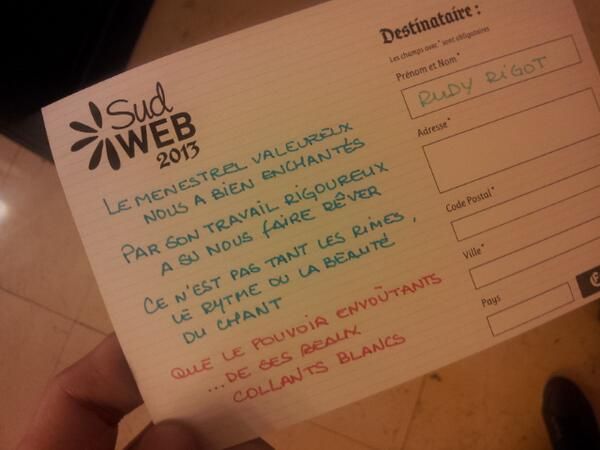 Sud
WEB
2013
LE MENESTREL VALEUREUX
NOUS A BIEN ENCHANTÉS
PAR SON TRAVAIL RIGOUREUX
A SU NOUS FAIRE RÊVER
CE N'EST PAS TANT LES RIMES,
LE RYTME OU LA BEAUTÉ
DU CHANT
QUE LE POUVOIR ENVOÛTANTS
...DE SES BEAUX
COLLANTS BLANCS
Destinataire :
Les champs avec * sont obligatoires
Prénom et Nom*
RUDY RIGOT
Adresse*
Code Postal*
Ville*
Pays